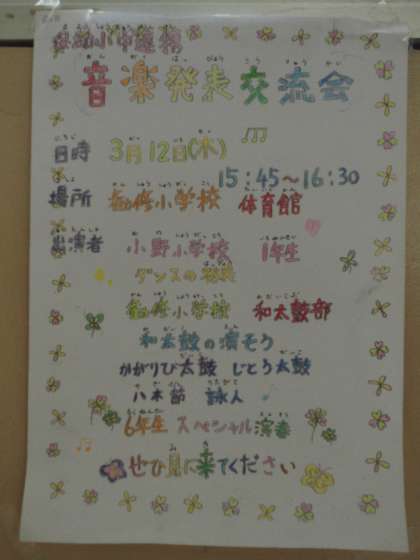 音楽発表交流会
日時 3月12日(木)
15:45〜16:30
場所 勧修小学校 体育館
出演者 小野小学校 1年生
ダンスの発表
勧修小学校 和太鼓部
和太鼓の演そう
かがりび太鼓 じとう太鼓
八木節 詠人
6年生 スペシャル演奏
ぜひ見に来てください